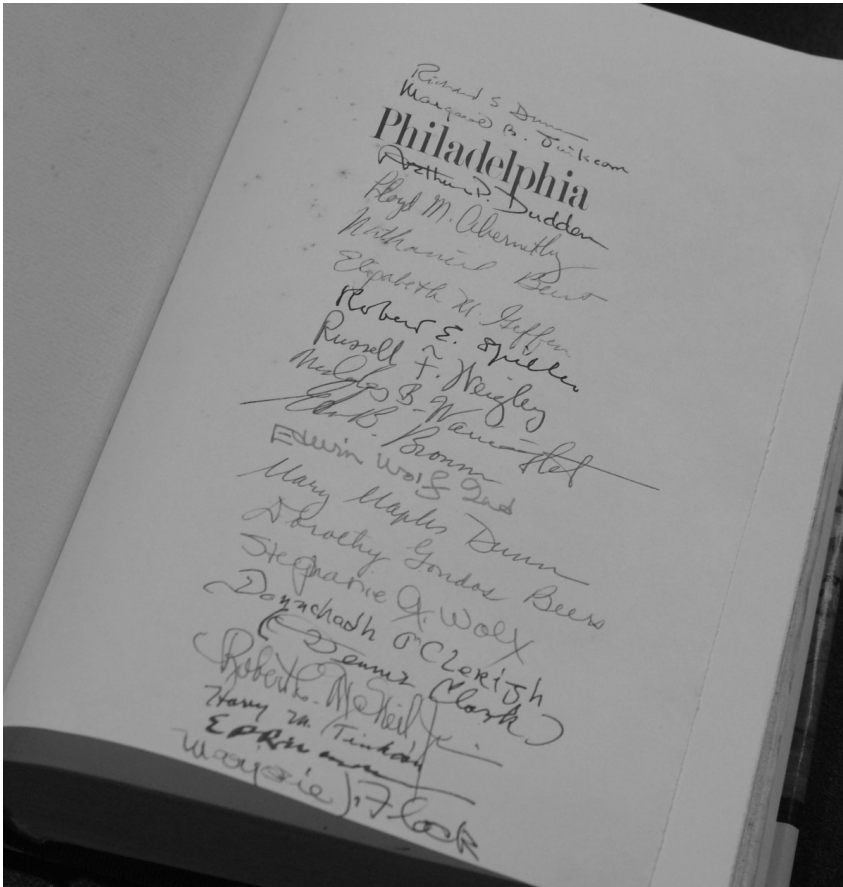 Richard S Dunn
Margaret B. Tinkcom
Philadelphia
Arthur P. Dudden
Lloyd M. Abernethy
Nathaniel Burt
Elizabeth M. Geffen
Robert E. Spiller
Russell F. Weigley
Nicholas B. Wainwright
B. Bronner
Edwin Wolf 2nd
Mary Maples Dunn
Dorothy Gondos Beers
Stephanie G. Wolf
Donnchadh O'Cleirigh
(Dennis Clark)
Robert L. McNeil Jr
Harry M. Tinkcom
Marjorie J. Flock